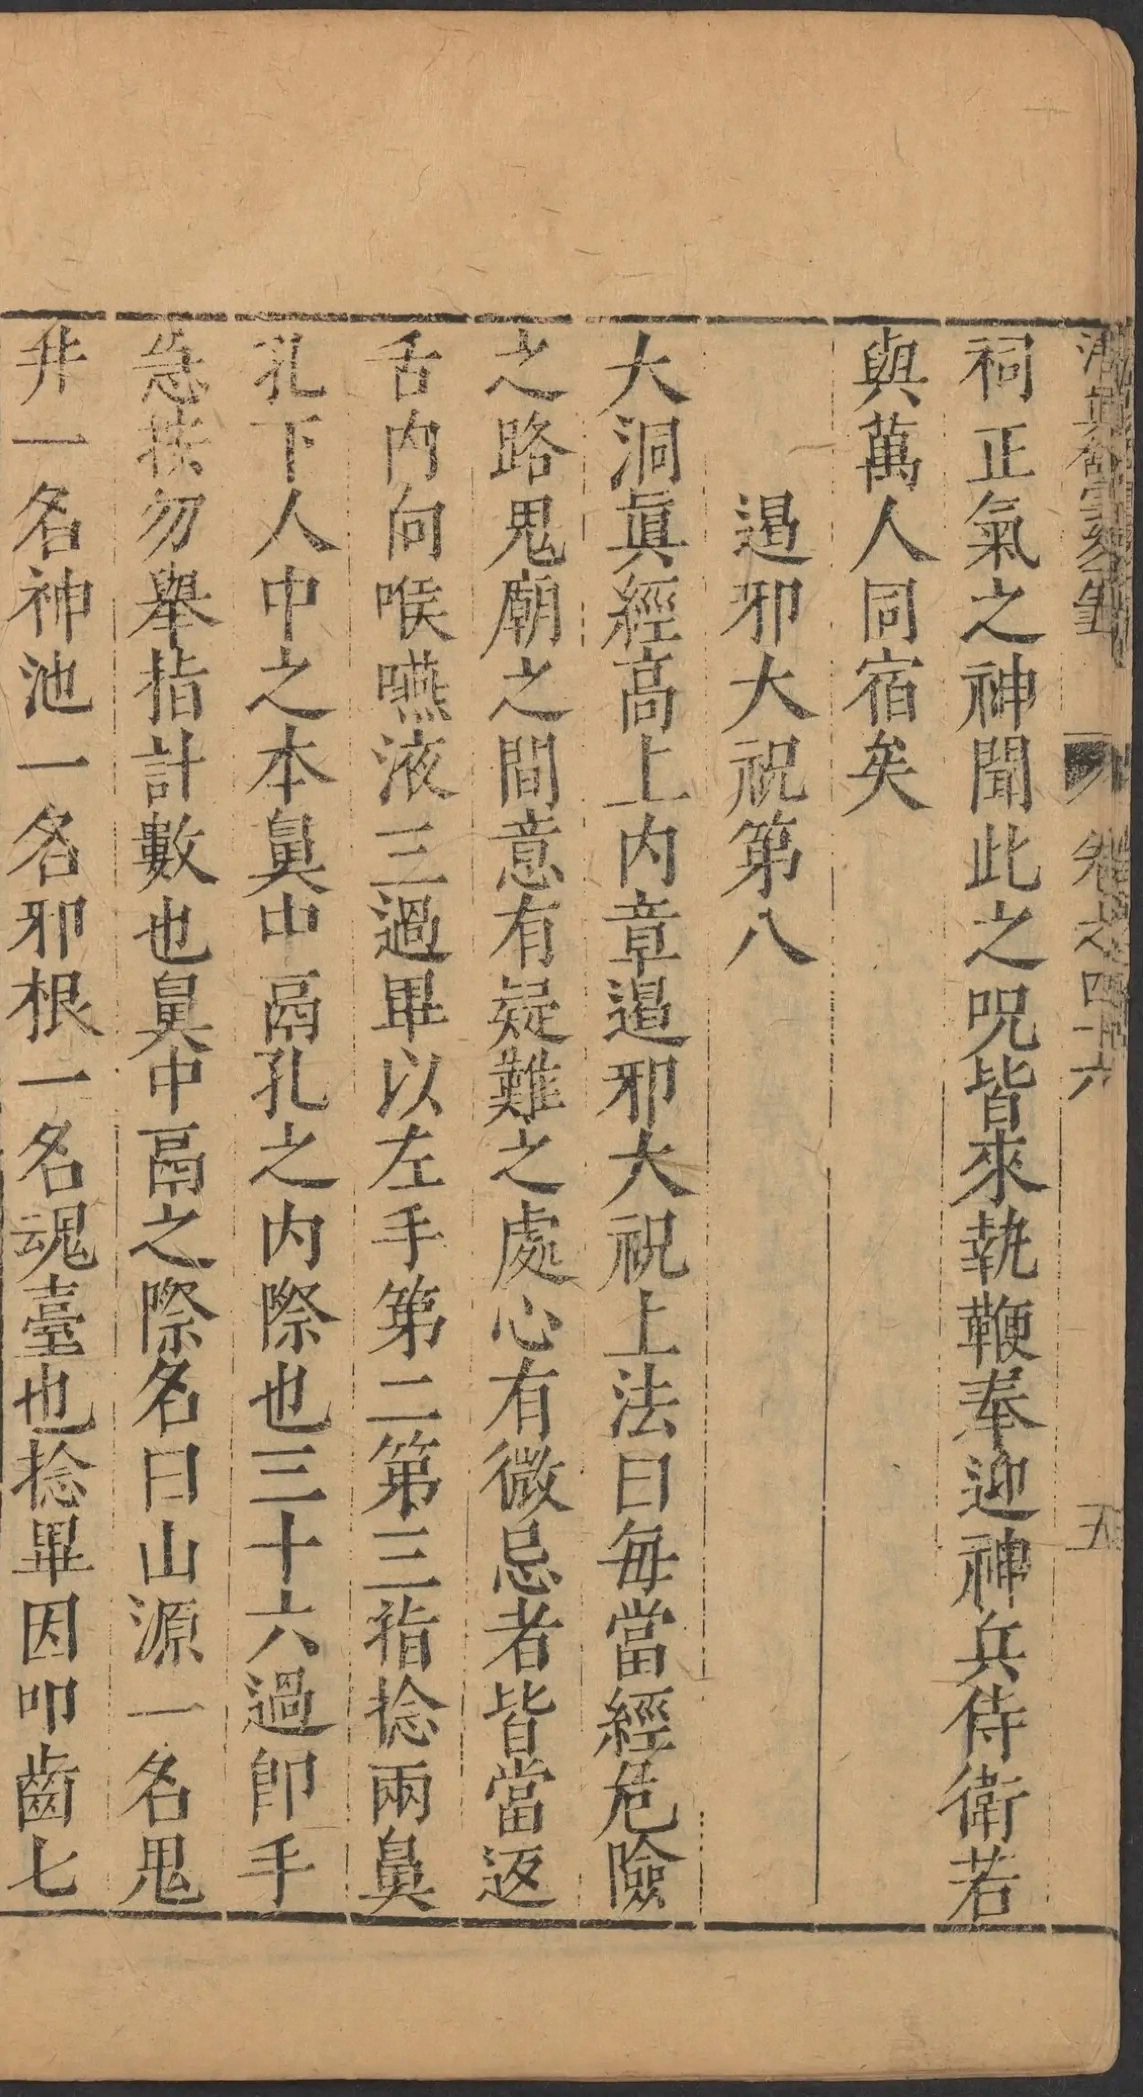 卷之四十六
五
祠正氣之神聞此之呪皆來執鞭奉迎神兵侍衛若
與萬人同宿矣
遏邪大祝第八
大洞眞經高上内章遏邪大祝上法曰每當經危險
之路鬼廟之間意有疑難之處心有微忌者皆當返
舌内向喉嚥液三過畢以左手第二第三指捻兩鼻
孔下人中之本鼻中鬲孔之内際也三十六過即手
急按勿舉指計數也鼻中鬲之際名曰山源一名鬼
井一名神池一名邪根一名魂臺也捻畢因叩齒七